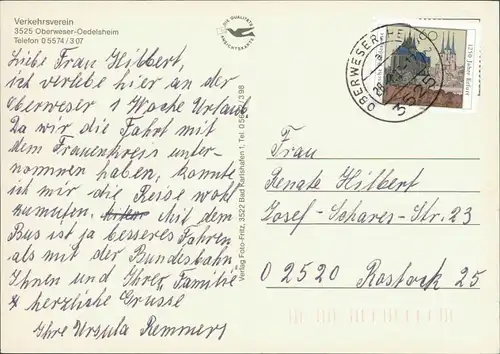 Verkehrsverein
3525 Oberweser-Oedelsheim
Telefon 0 55 74 / 3 07
DIE QUALITÄTS
ANSICHTSKARTE
Liebe Frau Hilbert,
ich verlebe hier an der
Oberweser 1 Woche Urlaub.
Da wir die Fahrt mit
dem Frauenkreis unter-
nommen haben, konnte
ich mir die Reise wohl
zumuten. Mit dem
Bus ist ja besseres Fahren
als mit der Bundesbahn
Ihnen und Ihrer Familie
& herzliche Grüsse
Ihre Ursula Remmers
Verlag Foto-Fritz, 3522 Bad Karlshafen 1, Tel. 398
OBERWESER
3525
1250 Jahre Erfurt
Frau
Renate Hilbert
Josef-Schares-Str. 23
O 2520 Rostock 25